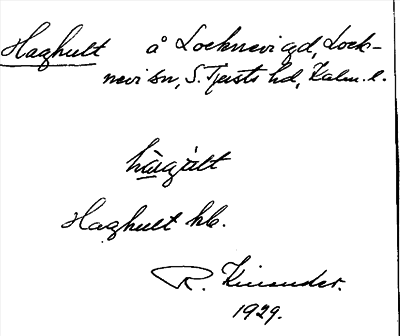 Haghult å Locknevi gd, Lock-
nevi sn, S. Tjusts hd, Kalm. l.
hàgàlt
Haghult hb.
R. Kinander.
1929.